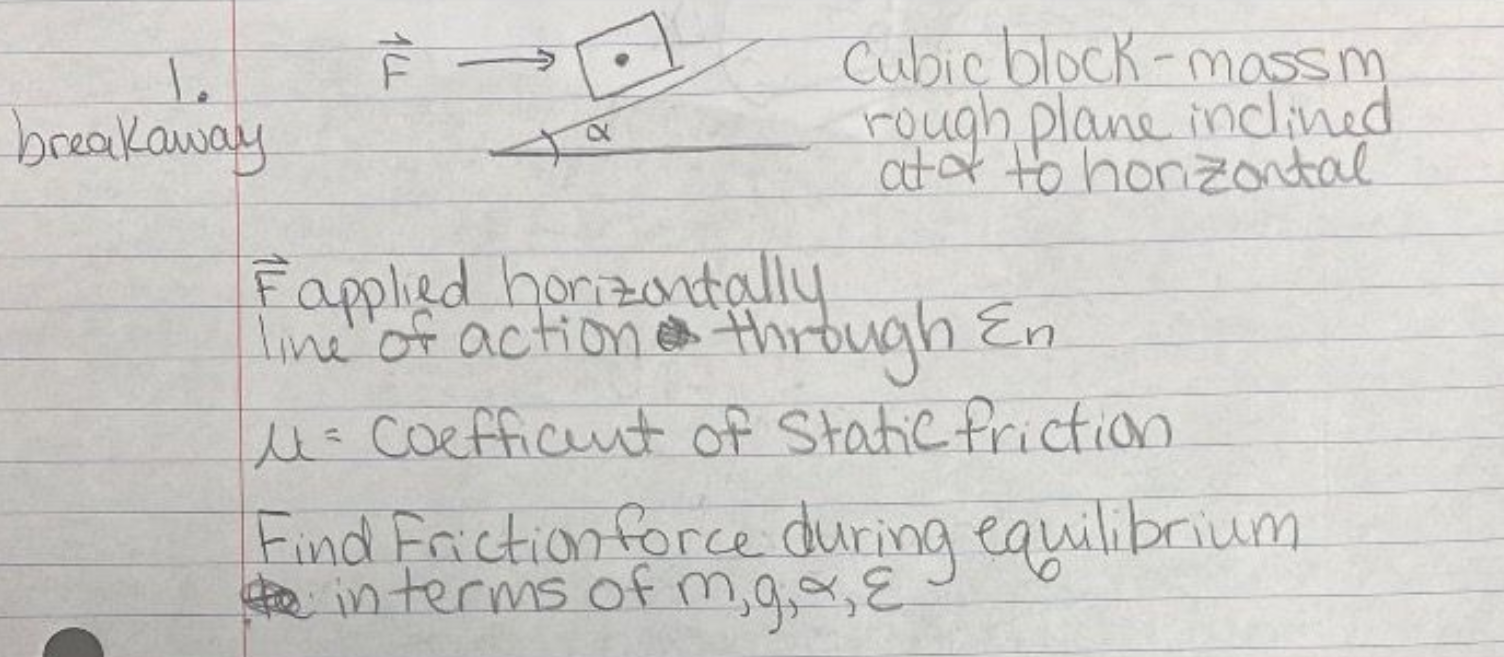 1.
breakaway
F
α
Cubic block - mass m
rough plane inclined
at α to horizontal
F applied horizontally
line of action through Σn
μ = Coefficient of Static friction
Find Friction force during equilibrium
in terms of m, g, α, Σ